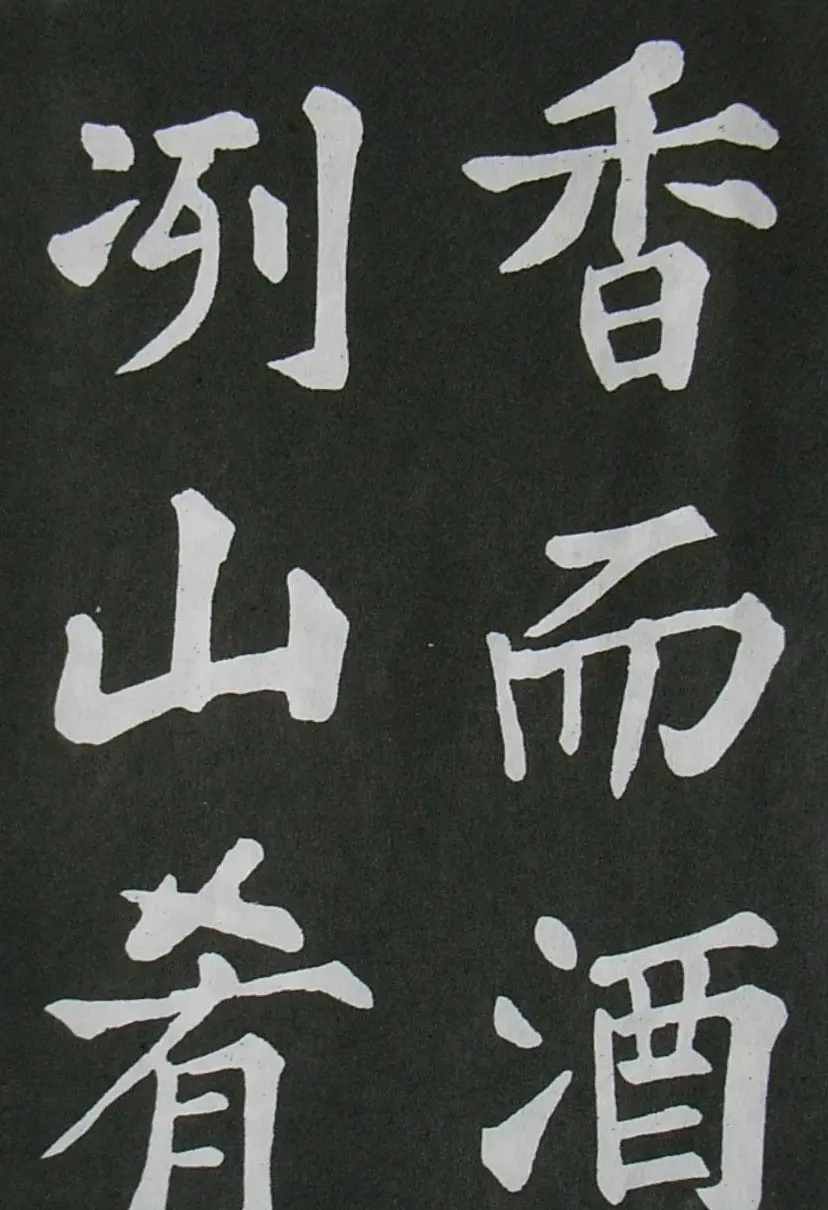 香而酒
冽山肴